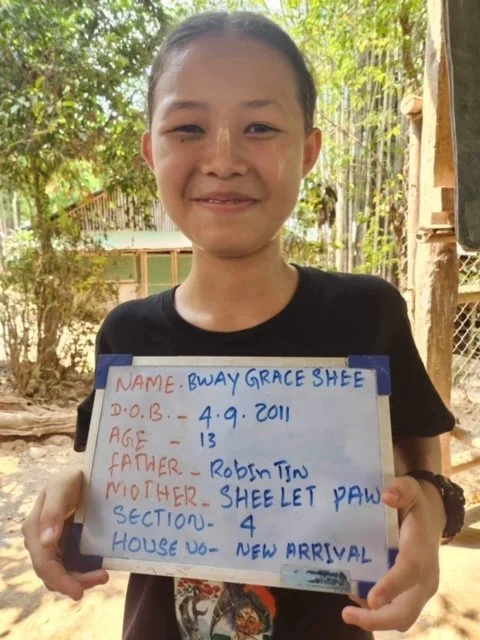 NAME. BWAY GRACE SHEE
D.O.B. - 4.9.2011
AGE - 13
FATHER - Robin TIN
MOTHER - SHEE LET PAW
SECTION - 4
HOUSE NO - NEW ARRIVAL